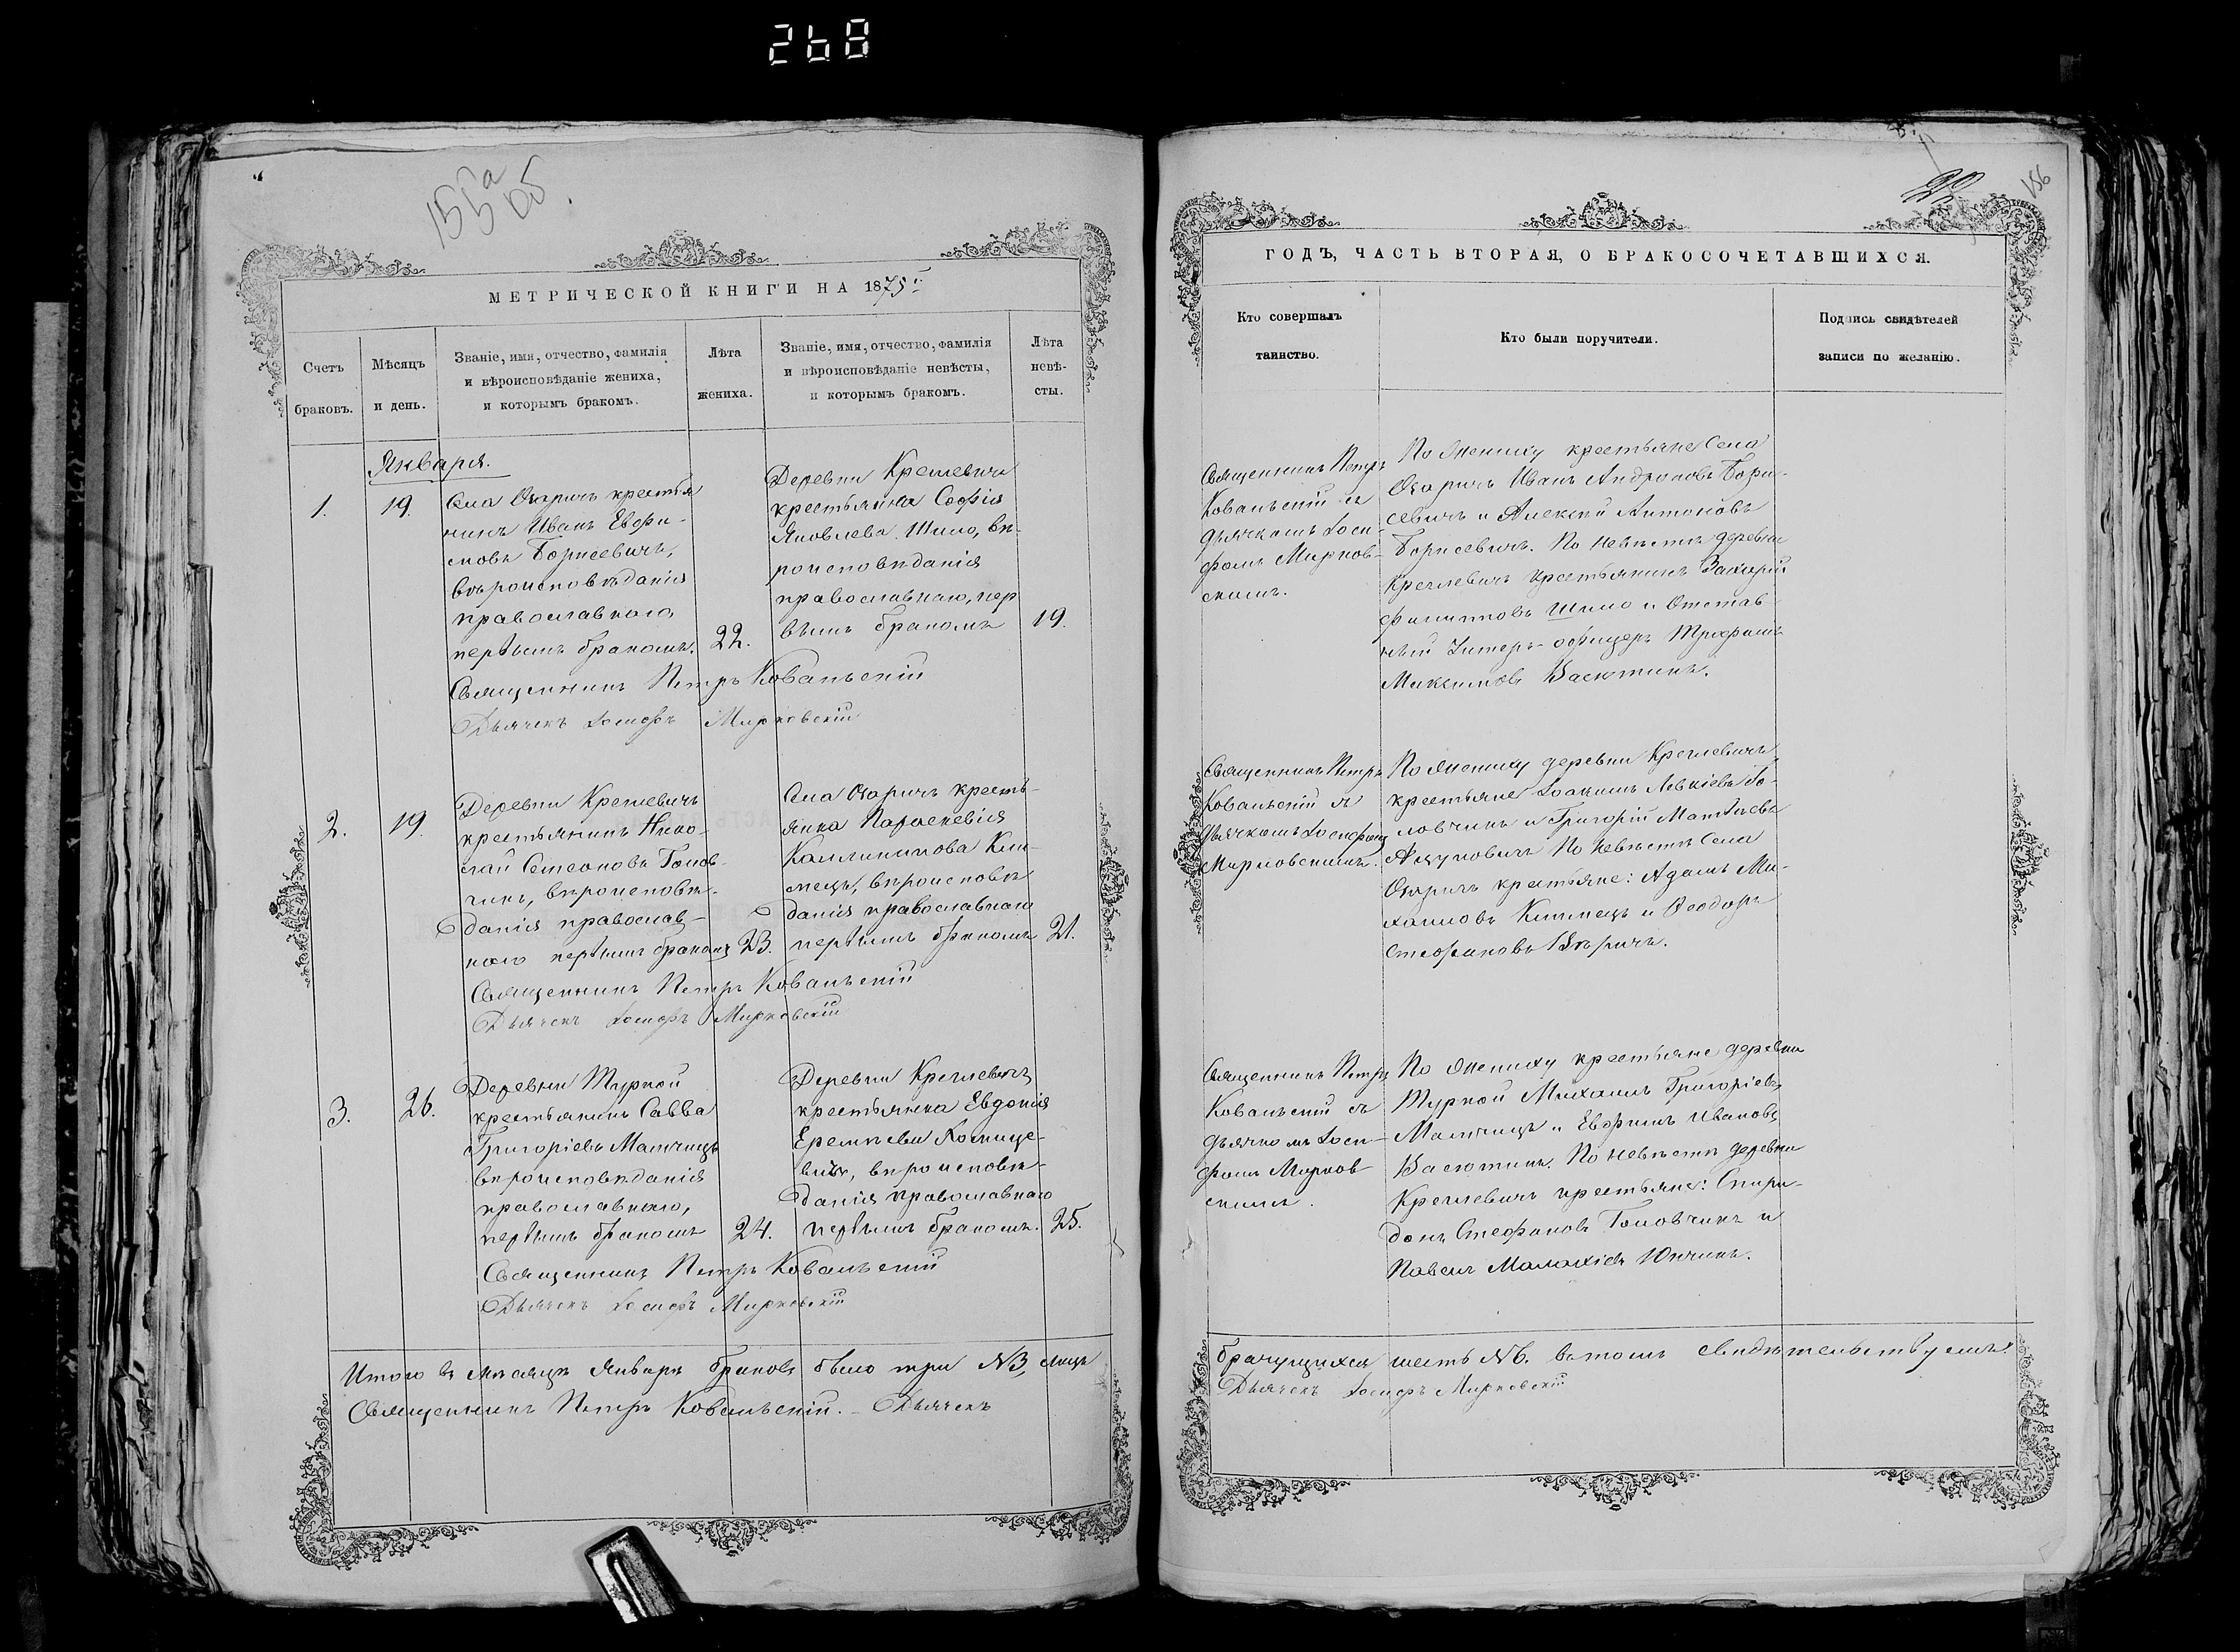 268
155а
МЕТРИЧЕСКОЙ КНИГИ НА 1875й
Счетъ браковъ.
Мѣсяцъ и день.
Званіе, имя, отчество, фамилія
и вѣроисповѣданіе жениха,
и которымъ бракомъ.
Лѣта
жениха.
Званіе, имя, отчество, фамилія
и вѣроисповѣданіе невѣсты,
и которымъ бракомъ.
Лѣта
невѣ-
сты.
Января.
1.
19.
Села Озаричъ крестья
нинъ Иванъ Евфи-
мовъ Борисевичъ,
вѣроисповѣданія
православнаго,
первымъ бракомъ.
22.
Деревни Кремевичъ
крестьянка Софія
Яковлева Шило, вѣ-
роисповѣданія
православнаго, пер
вымъ бракомъ
19.
Священникъ Петръ Ковалевскій
Дьячекъ Іосифъ Мирковскій
2.
19.
Деревни Кремевичъ
крестьянинъ Нико-
лай Семеоновъ Голов-
чикъ, вѣроисповѣ-
данія православ-
наго первымъ бракомъ
23.
Села Озаричъ кресть-
янка Параскевія
Каллиникова Кли-
мецъ, вѣроисповѣ
данія православнаго
первымъ бракомъ
21.
Священникъ Петръ Ковалевскій
Дьячекъ Іосифъ Мирковскій
3.
26.
Деревни Туркой
крестьянинъ Савва
Григоріевъ Матчицъ
вѣроисповѣданія
православнаго,
первымъ бракомъ
24.
Деревни Кремевичъ
крестьянка Евдокія
Еремѣева
вѣроисповѣ-
данія православнаго
первымъ бракомъ.
25.
Священникъ Петръ Ковалевскій
Дьячекъ Іосифъ Мирковскій
Итого въ мѣсяцѣ Январѣ браковъ было три №3, лицъ
Священникъ Петръ Ковалевскій. Дьячекъ
22
156
ГОДЪ, ЧАСТЬ ВТОРАЯ, О БРАКОСОЧЕТАВШИХСЯ.
Кто совершалъ
таинство.
Кто были поручители.
Подпись свидѣтелей
записи по желанію.
Священникъ Петръ
Ковалевскій съ
дьячкомъ Іоси-
фомъ Мирков-
скимъ.
По жениху крестьяне Села
Озаричъ Иванъ Андроновъ Бори-
севичъ и Алексѣй Антоновъ
Борисевичъ. По невѣстѣ деревни
Кремлевичъ крестьянинъ Захарій
Филипповъ Шило и Отстав-
ный Унтеръ-офицеръ Трофимъ
Максимовъ Васютинъ.
Священникъ Петръ
Ковалевскій съ
Дьячкомъ Іосифомъ
Мирковскимъ.
По жениху деревни Кремлевичъ
крестьяне Іоакимъ Левкіевъ Го-
ловчикъ и Григорій Матѳѣевъ
По невѣстѣ Села
Озаричъ крестьяне: Адамъ Ми-
хаиловъ Климецъ и Ѳеодоръ
Стефановъ
Священникъ Петръ
Ковалевскій съ
дьячкомъ Іоси-
фомъ Мирков
скимъ.
По жениху крестьяне деревни
Туркой Михаилъ Григоріевъ
Матчицъ и Евфимъ Ивановъ
Васютинъ. По невѣстѣ деревни
Кремлевичъ крестьяне: Спири-
донъ Стефановъ Головчикъ и
Павелъ Малахіевъ Юнчикъ.
брачущихся шесть №6. въ томъ свидѣтельствуемъ:
Дьячекъ Іосифъ Мирковскій